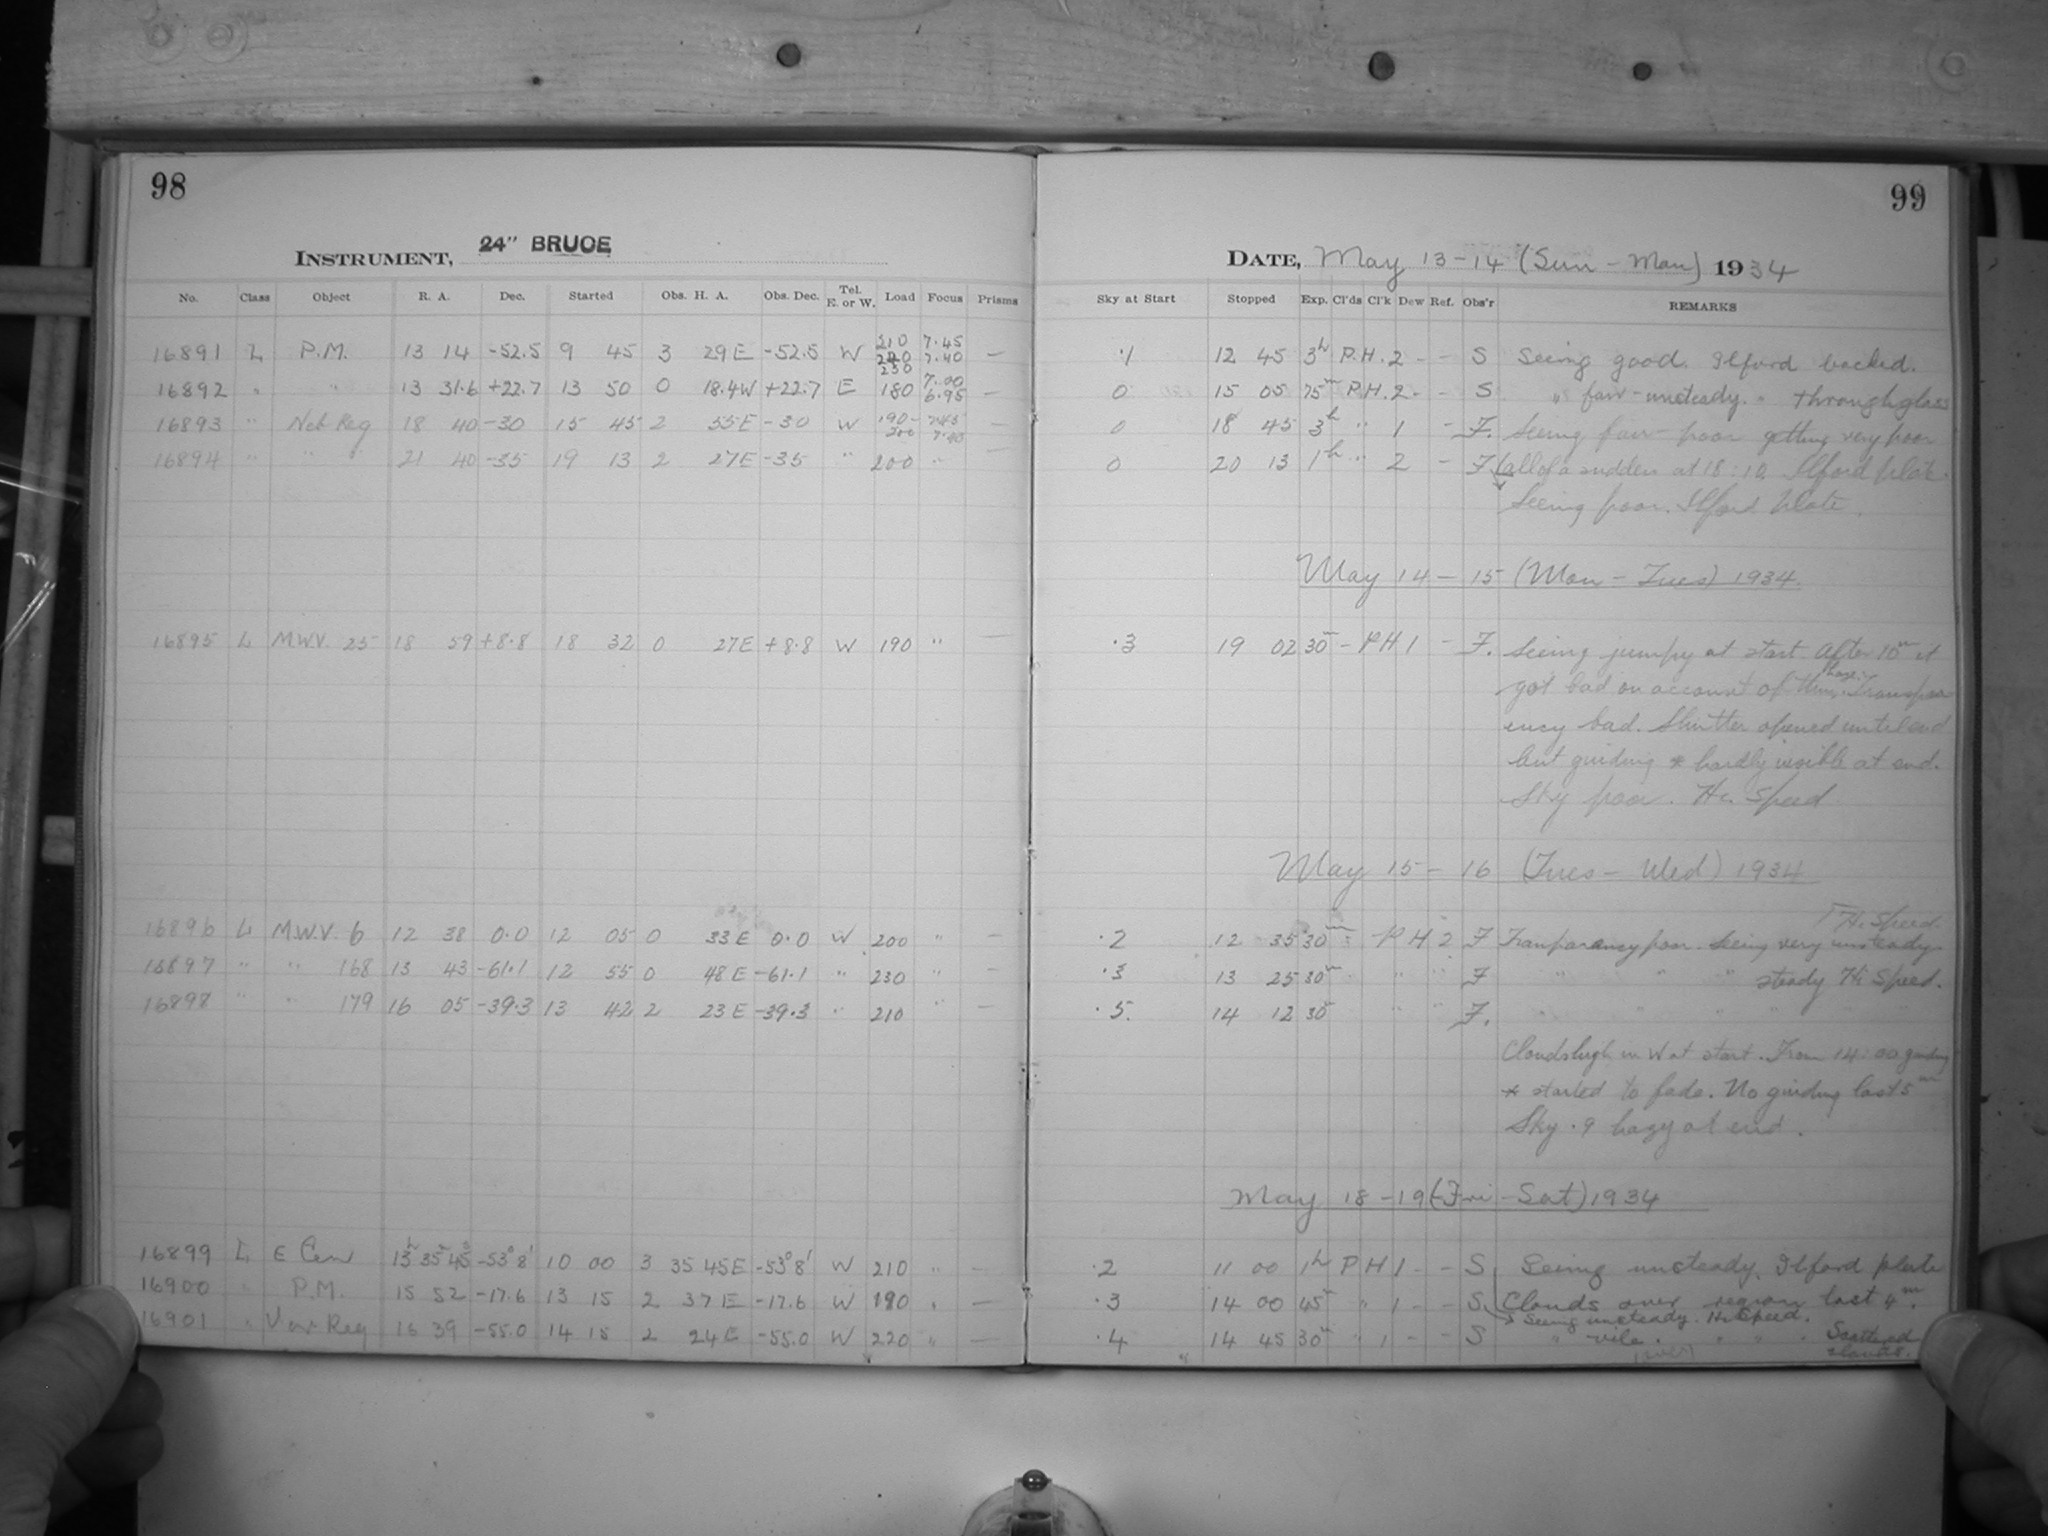 98
INSTRUMENT, 24" BRUCE
No. Class Object R. A. Dec. Started Obs. H. A. Obs. Dec. Tel. E. or W. Load Focus Prisms
16891 L P.M. 13 14 -52.5 9 45 3 29E -52.5 W 210 220 230 7.45 7.40 —
16892 " " 13 31.6 +22.7 13 50 0 18.4W +22.7 E 180 7.00 6.95 —
16893 " Neb Reg 18 40 -30 15 45 2 55E -30 W 190- 200 7.45 7.40 —
16894 " " " 21 40 -35 19 13 2 27E -35 " 200 " —
16895 L M.W.V. 25 18 59 +8.8 18 32 0 27E +8.8 W 190 " —
16896 L M.W.V. 6 12 38 0.0 12 05 0 33E 0.0 W 200 " —
16897 " " 168 13 43 -61.1 12 55 0 48E -61.1 " 230 " —
16898 " " 179 16 05 -39.3 13 42 2 23E -39.3 " 210 " —
16899 L E Cen 13h 35m 45s -53° 8' 10 00 3 35 45E -53° 8' W 210 " —
16900 " P.M. 15 52 -17.6 13 15 2 37E -17.6 W 190 " —
16901 " Var Reg 16 39 -55.0 14 15 2 24E -55.0 W 220 " —
99
DATE, May 13-14 (Sun - Mon) 1934
Sky at Start Stopped Exp. Cl'ds Cl'k Dew Ref. Obs'r REMARKS
.1 12 45 3h P.H. 2 - - S Seeing good. Ilford backed.
0 15 05 75m P.H. 2 - - S " fair-unsteady. " through glass
0 18 45 3h " 1 - F. Seeing fair - poor getting very poor
0 20 13 1h " 2 - F (all of a sudden at 18:10. Ilford plate.
Seeing poor. Ilford Plate.
May 14 - 15 (Mon - Tues) 1934.
.3 19 02 30m - P H 1 - F. Seeing jumpy at start. After 10m it
got bad on account of thin haze. Transpar
ency bad. Shutter opened until end
but guiding * hardly visible at end.
Sky poor. Hi. Speed
May 15 - 16 (Tues - Wed) 1934
Hi. Speed.
.2 12 35 30m - P H 2 F Tranparency poor. Seeing very unsteady
.3 13 25 30m " " F " " " steady Hi Speed.
.5. 14 12 30 " " F. " " " "
Clouds high in W at start. From 14:00 guiding
* started to fade. No guiding last 5m
Sky .9 hazy at end.
May 18 - 19 (Fri - Sat) 1934
.2 11 00 1h P H 1 - - S Seeing unsteady. Ilford plate
.3 14 00 45m " 1 - - S Clouds over region last 4m.
Seeing unsteady. Hi Speed.
.4 14 45 30m " 1 - - S " vile. " " Scattered
clouds.